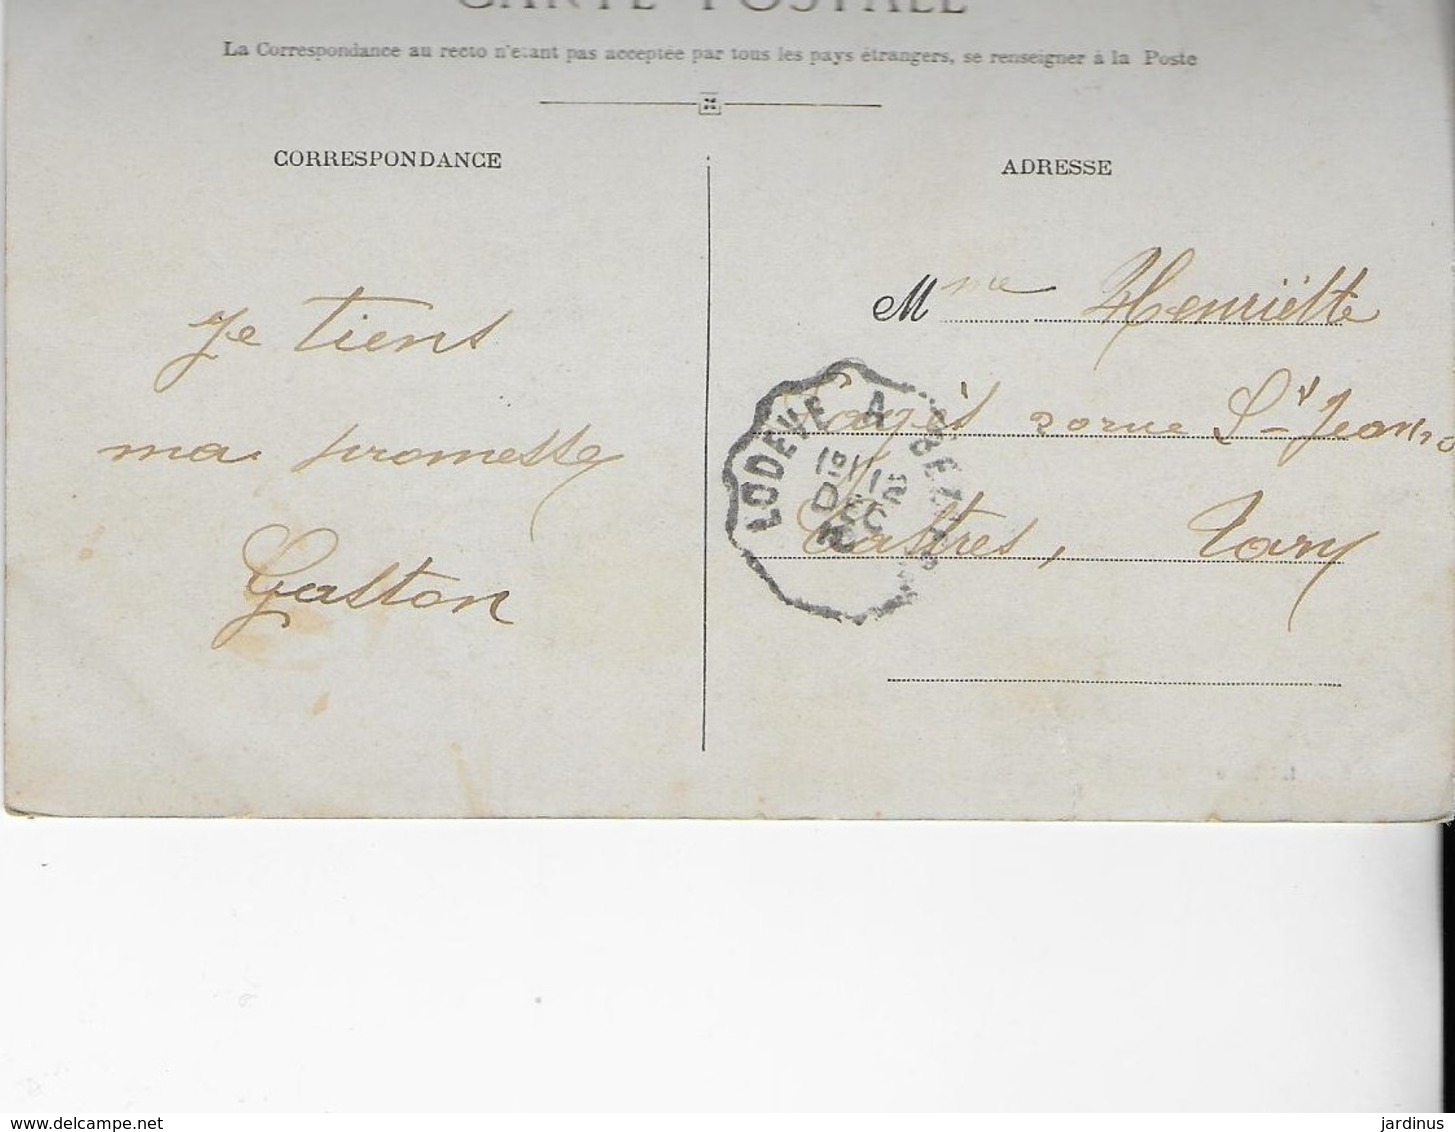 CARTE POSTALE
La Correspondance au recto n'étant pas acceptée par tous les pays étrangers, se renseigner à la Poste
CORRESPONDANCE
Je tiens
ma promesse
Gaston
ADRESSE
Mme Henriëtte
rue St Jean
Castres, Tarn
LODEVE A
DEC
jardinus